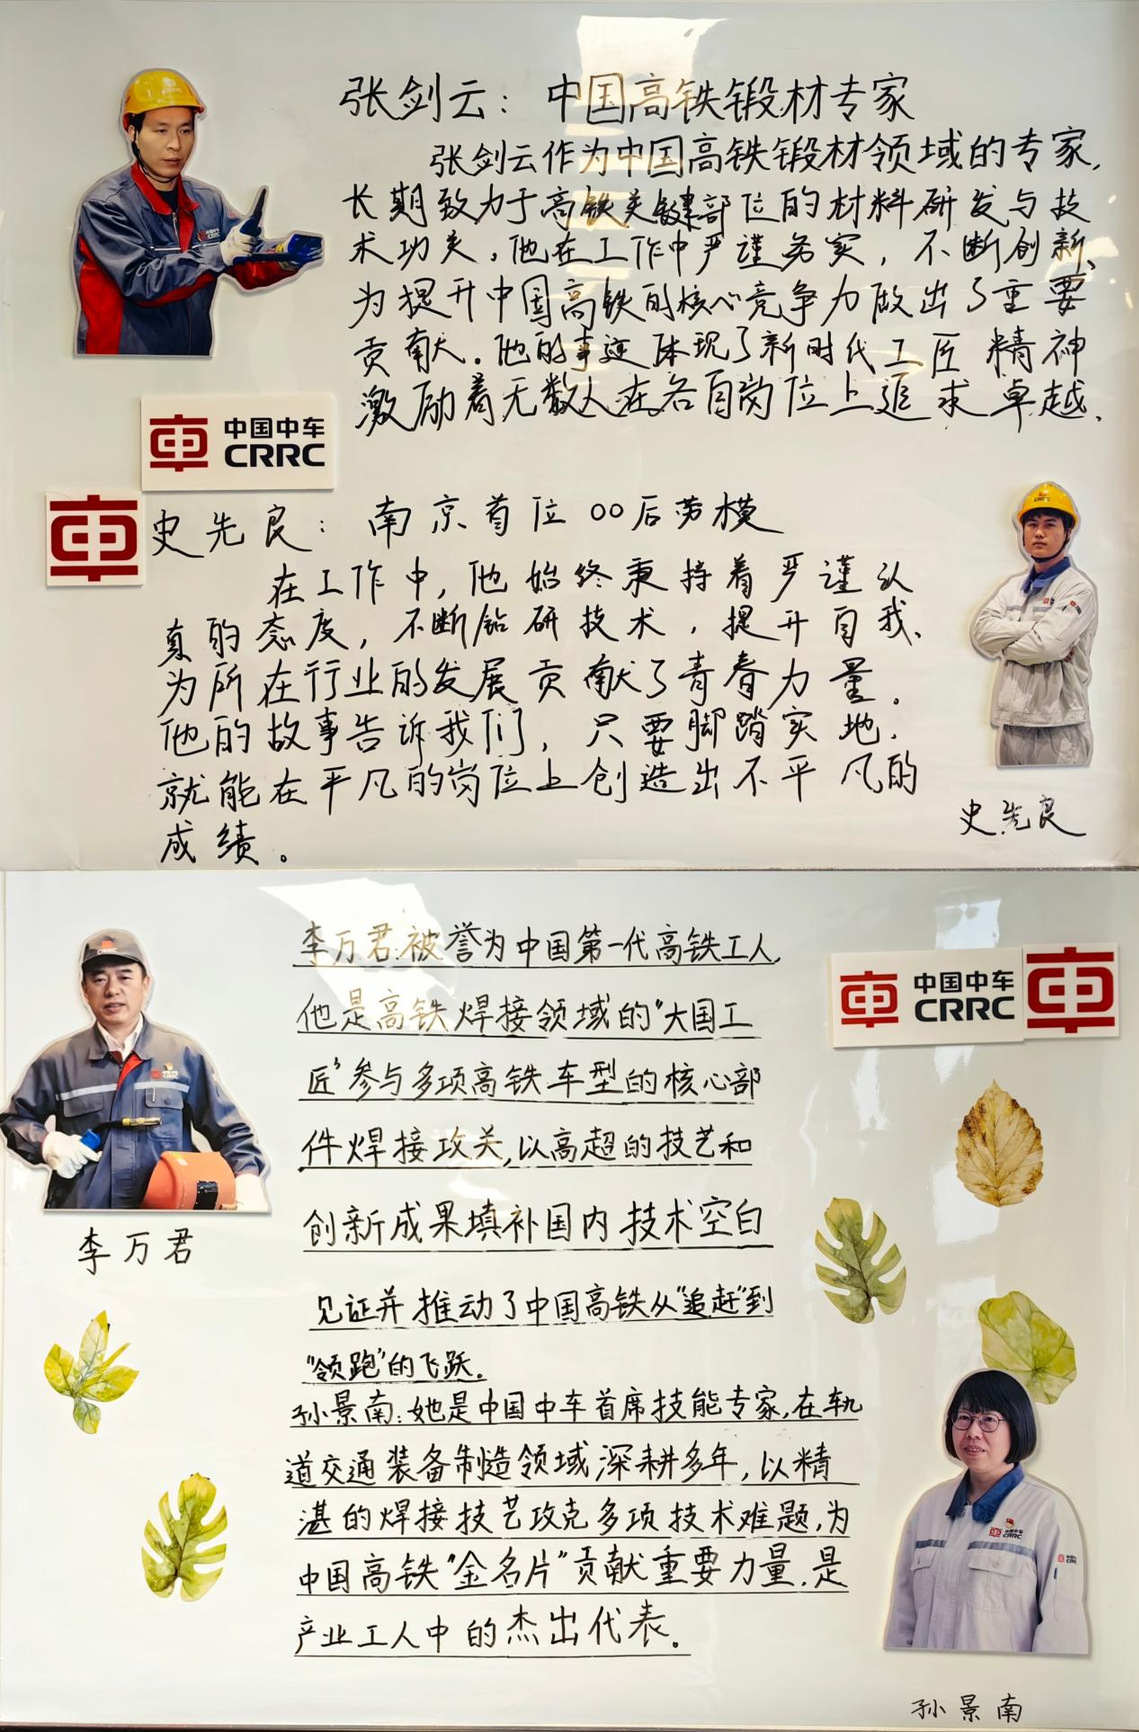 张剑云：中国高铁锻材专家
张剑云作为中国高铁锻材领域的专家,
长期致力于高铁关键部位的材料研发与技
术功关,他在工作中严谨务实,不断创新、
为提升中国高铁的核心竞争力做出了重要
贡献。他的事迹体现了新时代工匠精神
激励着无数人在各自岗位上追求卓越.
車 中国中车
CRRC
車
史先良：南京首位00后劳模
在工作中,他始终秉持着严谨认
真的态度,不断钻研技术,提升自我、
为所在行业的发展贡献了青春力量。
他的故事告诉我们,只要脚踏实地.
就能在平凡的岗位上创造出不平凡的
成绩。
史先良
李万君:被誉为中国第一代高铁工人,
他是高铁焊接领域的“大国工
匠’参与多项高铁车型的核心部
件焊接攻关,以高超的技艺和
创新成果填补国内技术空白
见证并推动了中国高铁从“追赶”到
“领跑”的飞跃.
車 中国中车
CRRC
車
李万君
孙景南:她是中国中车首席技能专家,在轨
道交通装备制造领域深耕多年,以精
湛的焊接技艺攻克多项技术难题,为
中国高铁“金名片”贡献重要力量,是
产业工人中的杰出代表。
孙景南